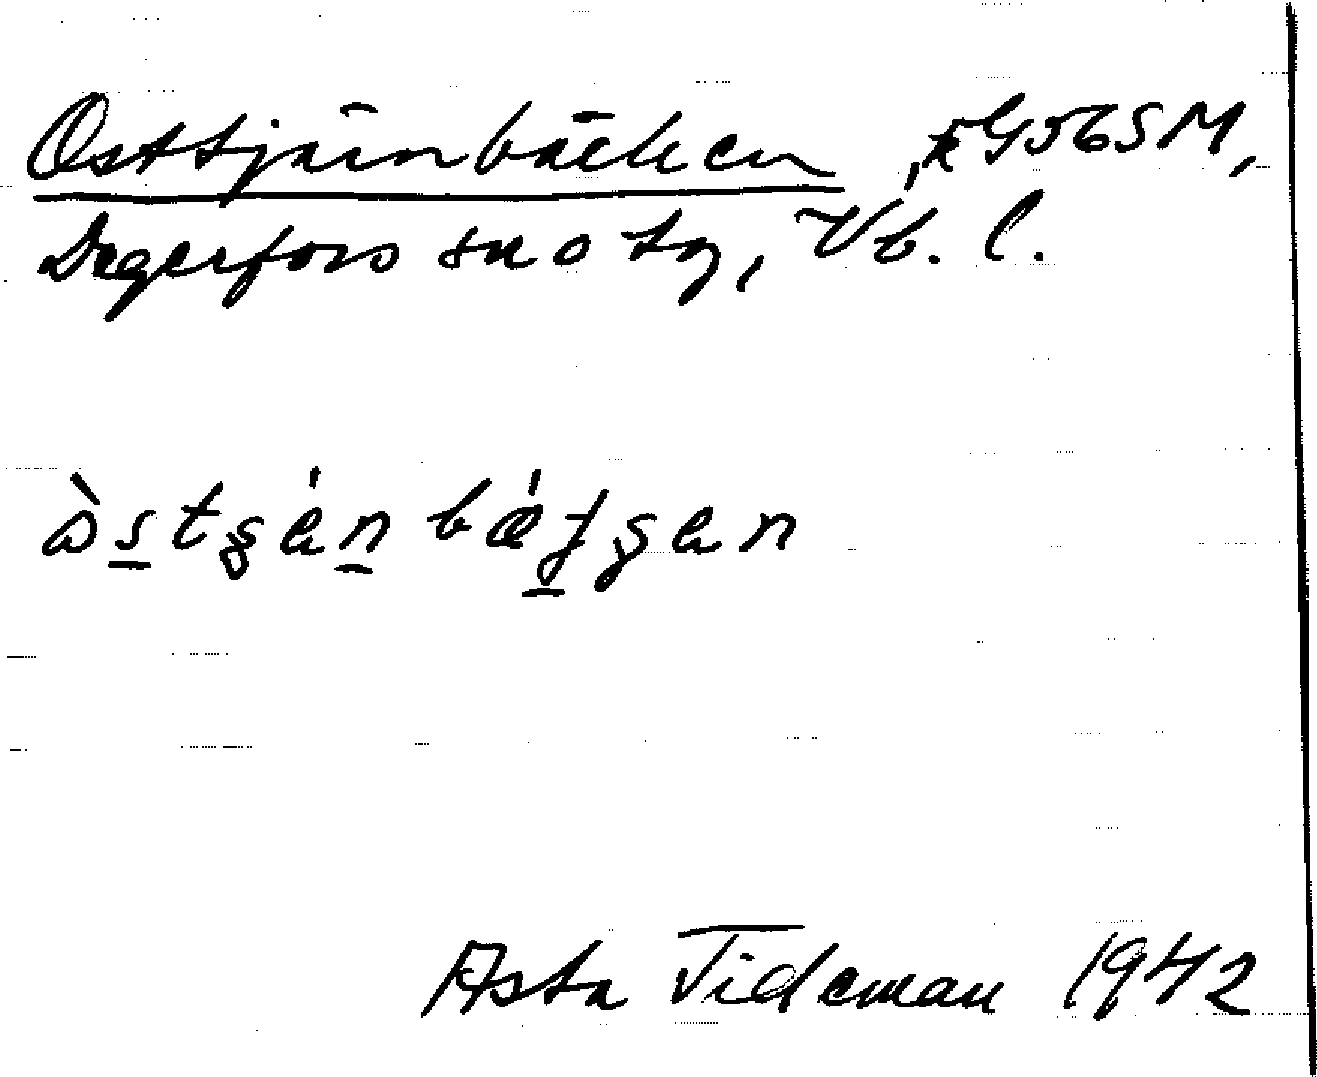 Osttjärnbäcken, FG565M,
Degerfors sn o tg, Vb. l.
òstşén bǽʈşen
Asta Tideman 1942